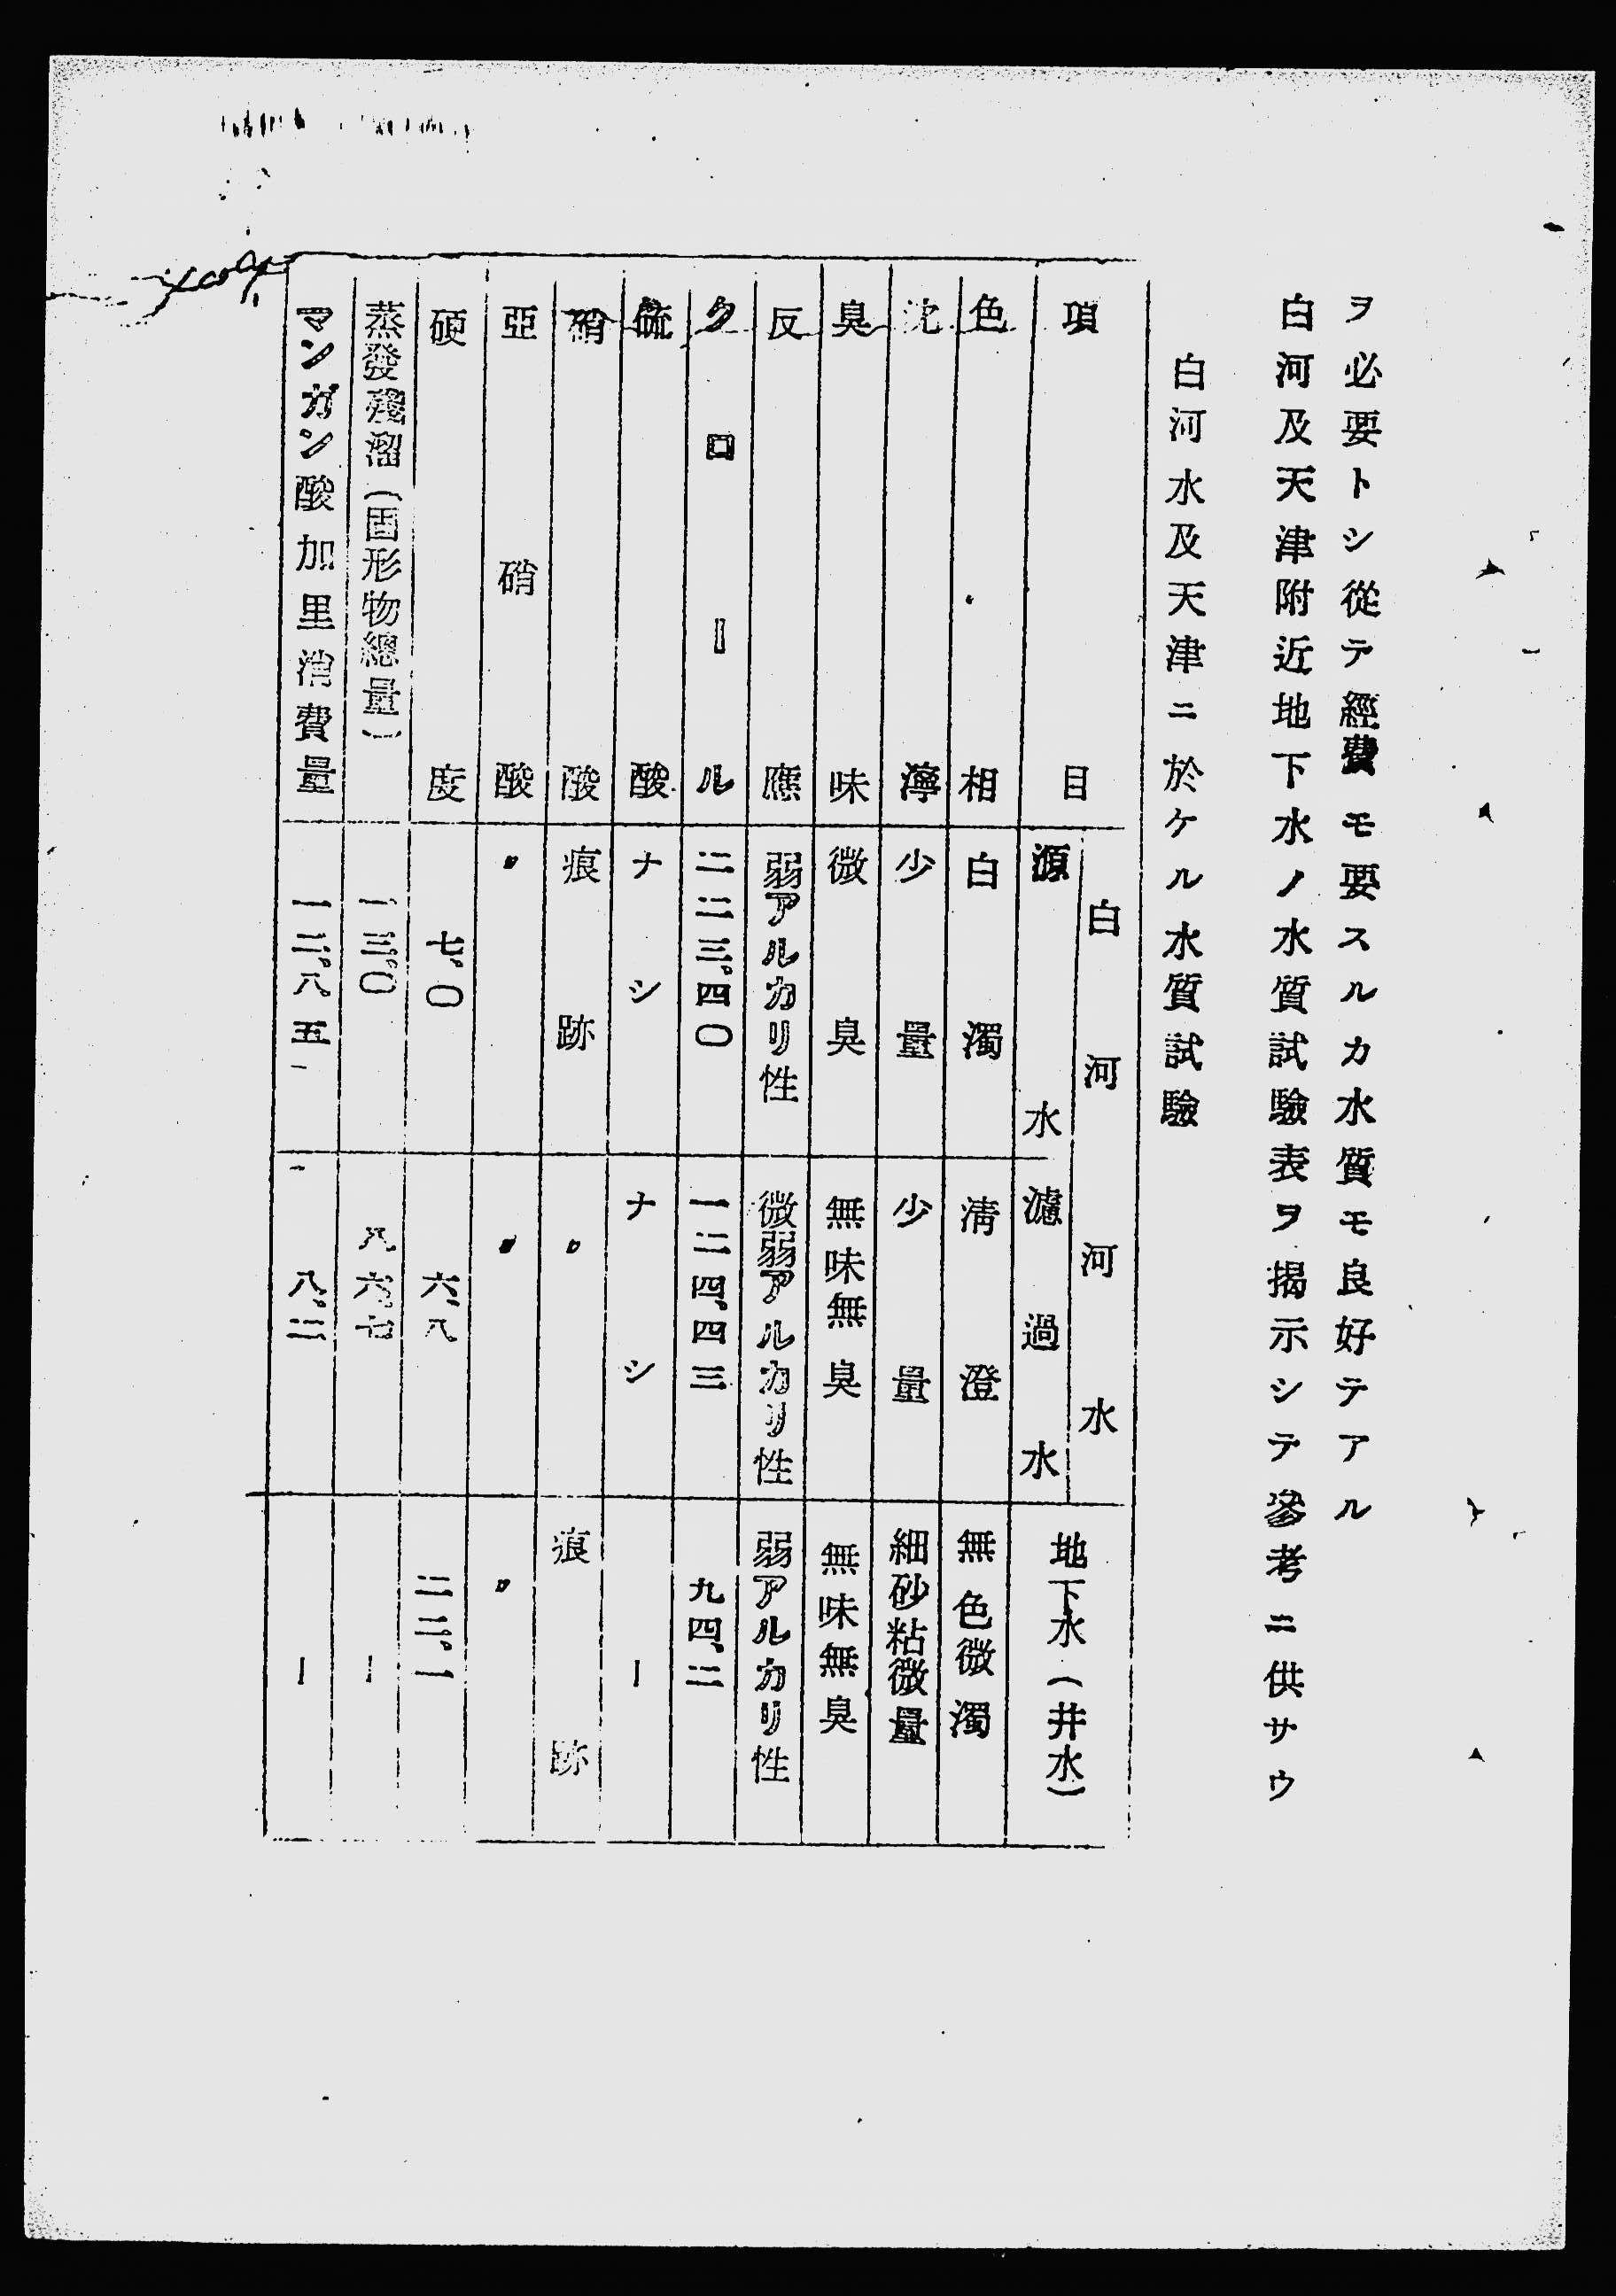 ヲ必要トシ從テ經費モ要スルカ水質モ良好テアル
白河及天津附近地下水ノ水質試驗表ヲ揭示シテ參考ニ供サウ
白河水及天津ニ於ケル水質試驗
項目
白河河水
源水
濾過水
地下水(井水)
色相 白濁 淸澄 無色微濁
沈濘 少量 少量 細砂粘微量
臭味 微臭 無味無臭 無味無臭
反應 弱アルカリ性 微弱アルカリ性 弱アルカリ性
クロール 二二三、四〇 一二四、四三 九四、二
硫酸 ナシ ナシ ー
硝酸 痕跡 〃 痕跡
亞硝酸 〃 〃 〃
硬度 七、〇 六、八 二二、一
蒸發殘溜(固形物總量) 一、三、〇 八六、七 ー
マンガン酸加里消費量 一二、八、五 八、二 ー